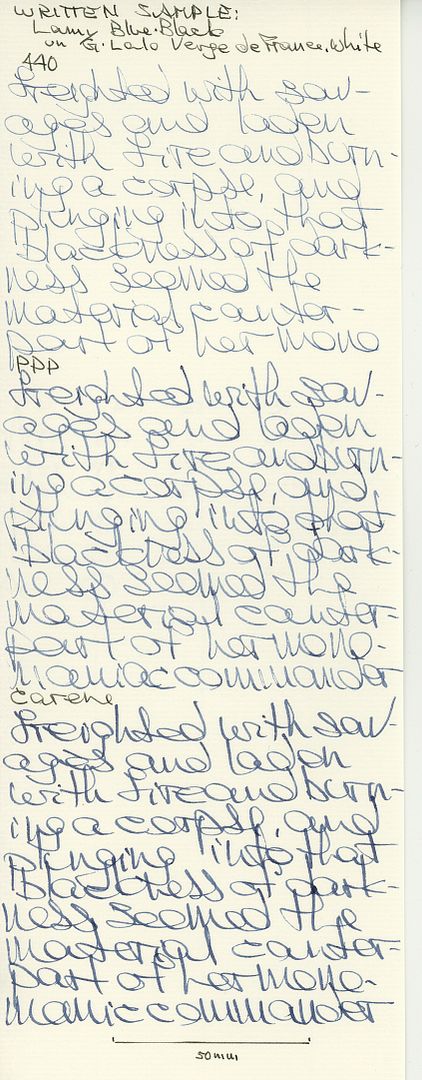 WRITTEN SAMPLE:
Lamy Blue.Black
on G. Lalo Verge de France.White
440
freighted with sav-
ages and laden
with fire and burn-
ing a corpse, and
plunging into that
blackness of dark-
ness seemed the
material counter-
part of her mono
PPP
freighted with sav-
ages and laden
with fire and burn-
ing a corpse, and
plunging into that
blackness of dark-
ness seemed the
material counter-
part of her mono-
maniac commander
Carene
freighted with sav-
ages and laden
with fire and burn-
ing a corpse, and
plunging into that
blackness of dark-
ness seemed the
material counter-
part of her mono-
manic commander
50mm